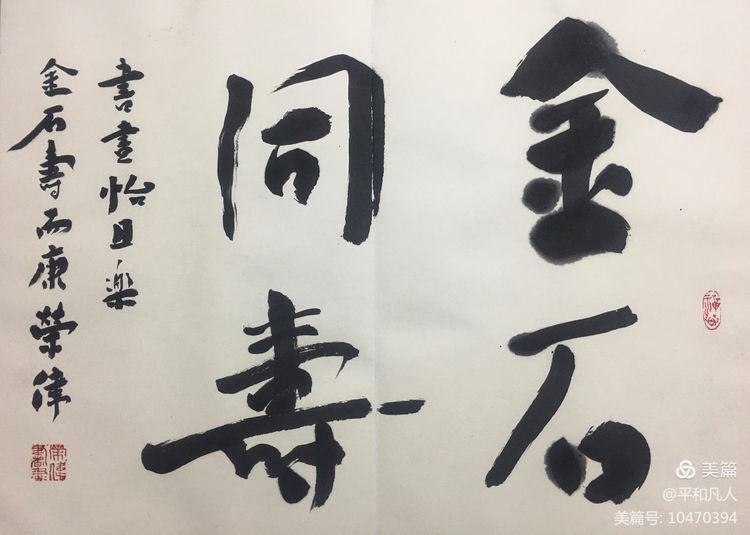 金石
同壽
書畫怡且樂
金石壽而康榮偉
美篇
@平和凡人
美篇号: 10470394